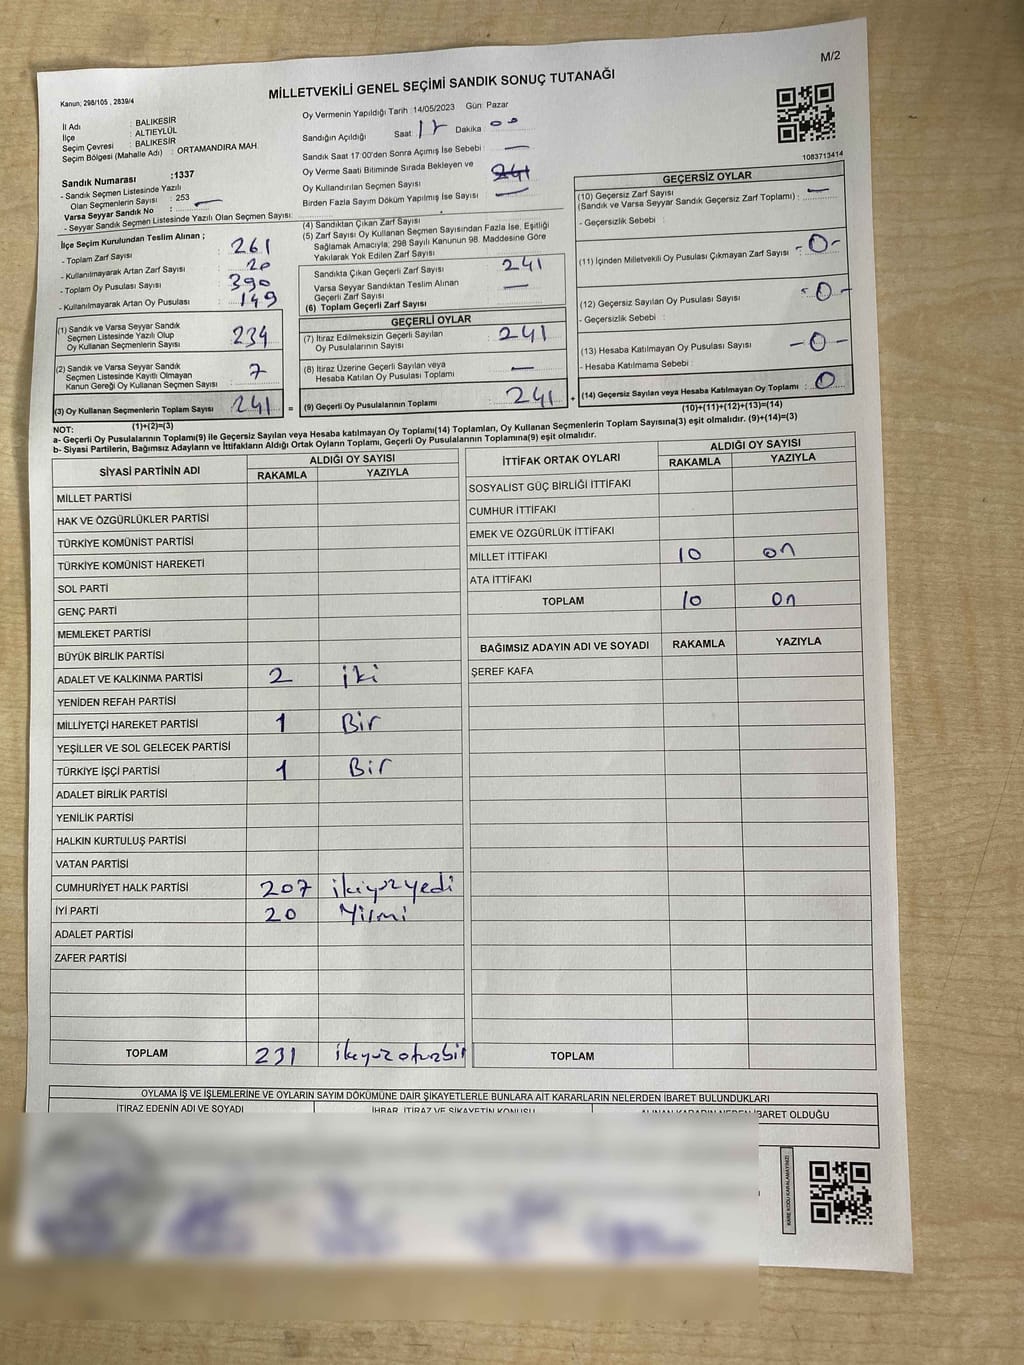 M/2
MİLLETVEKİLİ GENEL SEÇİMİ SANDIK SONUÇ TUTANAĞI
Kanun; 298/105 , 2839/4
İl Adı : BALIKESİR
İlçe : ALTIEYLÜL
Seçim Çevresi : BALIKESİR
Seçim Bölgesi (Mahalle Adı) : ORTAMANDIRA MAH.
Sandık Numarası :1337
- Sandık Seçmen Listesinde Yazılı
Olan Seçmenlerin Sayısı : 253
Varsa Seyyar Sandık No : —
- Seyyar Sandık Seçmen Listesinde Yazılı Olan Seçmen Sayısı:
Oy Vermenin Yapıldığı Tarih :14/05/2023 Gün: Pazar
Sandığın Açıldığı Saat: 17 Dakika : 00
Sandık Saat 17:00'den Sonra Açımış İse Sebebi : —
Oy Verme Saati Bitiminde Sırada Bekleyen ve
Oy Kullandırılan Seçmen Sayısı : 241
Birden Fazla Sayım Döküm Yapılmış İse Sayısı : —
1083713414
İlçe Seçim Kurulundan Teslim Alınan ;
- Toplam Zarf Sayısı : 261
- Kullanılmayarak Artan Zarf Sayısı : 20
- Toplam Oy Pusulası Sayısı : 390
- Kullanılmayarak Artan Oy Pusulası : 149
(1) Sandık ve Varsa Seyyar Sandık
Seçmen Listesinde Yazılı Olup
Oy Kullanan Seçmenlerin Sayısı : 234
(2) Sandık ve Varsa Seyyar Sandık
Seçmen Listesinde Kayıtlı Olmayan
Kanun Gereği Oy Kullanan Seçmen Sayısı : 7
(3) Oy Kullanan Seçmenlerin Toplam Sayısı : 241 =
(1)+(2)=(3)
(4) Sandıktan Çıkan Zarf Sayısı
(5) Zarf Sayısı Oy Kullanan Seçmen Sayısından Fazla İse, Eşitliği
Sağlamak Amacıyla; 298 Sayılı Kanunun 98. Maddesine Göre
Yakılarak Yok Edilen Zarf Sayısı :
Sandıkta Çıkan Geçerli Zarf Sayısı : 241
Varsa Seyyar Sandıktan Teslim Alınan
Geçerli Zarf Sayısı : —
(6) Toplam Geçerli Zarf Sayısı :
GEÇERLİ OYLAR
(7) İtiraz Edilmeksizin Geçerli Sayılan
Oy Pusulalarının Sayısı : 241
(8) İtiraz Üzerine Geçerli Sayılan veya
Hesaba Katılan Oy Pusulası Toplamı : —
(9) Geçerli Oy Pusulalarının Toplamı : 241 +
GEÇERSİZ OYLAR
(10) Geçersiz Zarf Sayısı
(Sandık ve Varsa Seyyar Sandık Geçersiz Zarf Toplamı) : —
- Geçersizlik Sebebi :
(11) İçinden Milletvekili Oy Pusulası Çıkmayan Zarf Sayısı : -0-
(12) Geçersiz Sayılan Oy Pusulası Sayısı : -0-
- Geçersizlik Sebebi :
(13) Hesaba Katılmayan Oy Pusulası Sayısı : -0-
- Hesaba Katılmama Sebebi :
(14) Geçersiz Sayılan veya Hesaba Katılmayan Oy Toplamı : 0
(10)+(11)+(12)+(13)=(14)
NOT:
a- Geçerli Oy Pusulalarının Toplamı(9) ile Geçersiz Sayılan veya Hesaba katılmayan Oy Toplamı(14) Toplamları, Oy Kullanan Seçmenlerin Toplam Sayısına(3) eşit olmalıdır. (9)+(14)=(3)
b- Siyasi Partilerin, Bağımsız Adayların ve İttifakların Aldığı Ortak Oyların Toplamı, Geçerli Oy Pusulalarının Toplamına(9) eşit olmalıdır.
SİYASİ PARTİNİN ADI ALDIĞI OY SAYISI
RAKAMLA YAZIYLA
MİLLET PARTİSİ
HAK VE ÖZGÜRLÜKLER PARTİSİ
TÜRKİYE KOMÜNİST PARTİSİ
TÜRKİYE KOMÜNİST HAREKETİ
SOL PARTİ
GENÇ PARTİ
MEMLEKET PARTİSİ
BÜYÜK BİRLİK PARTİSİ
ADALET VE KALKINMA PARTİSİ 2 iki
YENİDEN REFAH PARTİSİ
MİLLİYETÇİ HAREKET PARTİSİ 1 Bir
YEŞİLLER VE SOL GELECEK PARTİSİ
TÜRKİYE İŞÇİ PARTİSİ 1 Bir
ADALET BİRLİK PARTİSİ
YENİLİK PARTİSİ
HALKIN KURTULUŞ PARTİSİ
VATAN PARTİSİ
CUMHURİYET HALK PARTİSİ 207 ikiyüzyedi
İYİ PARTİ 20 Yirmi
ADALET PARTİSİ
ZAFER PARTİSİ
TOPLAM 231 ikeyüzotuzbir
İTTİFAK ORTAK OYLARI ALDIĞI OY SAYISI
RAKAMLA YAZIYLA
SOSYALİST GÜÇ BİRLİĞİ İTTİFAKI
CUMHUR İTTİFAKI
EMEK VE ÖZGÜRLÜK İTTİFAKI
MİLLET İTTİFAKI 10 on
ATA İTTİFAKI
TOPLAM 10 on
BAĞIMSIZ ADAYIN ADI VE SOYADI RAKAMLA YAZIYLA
ŞEREF KAFA
TOPLAM
OYLAMA İŞ VE İŞLEMLERİNE VE OYLARIN SAYIM DÖKÜMÜNE DAİR ŞİKAYETLERLE BUNLARA AİT KARARLARIN NELERDEN İBARET BULUNDUKLARI
İTİRAZ EDENİN ADI VE SOYADI İHBAR, İTİRAZ VE ŞİKAYETİN KONUSU ALINAN KARARIN NEDEN İBARET OLDUĞU
KARE KODU KARALAMAYINIZ!